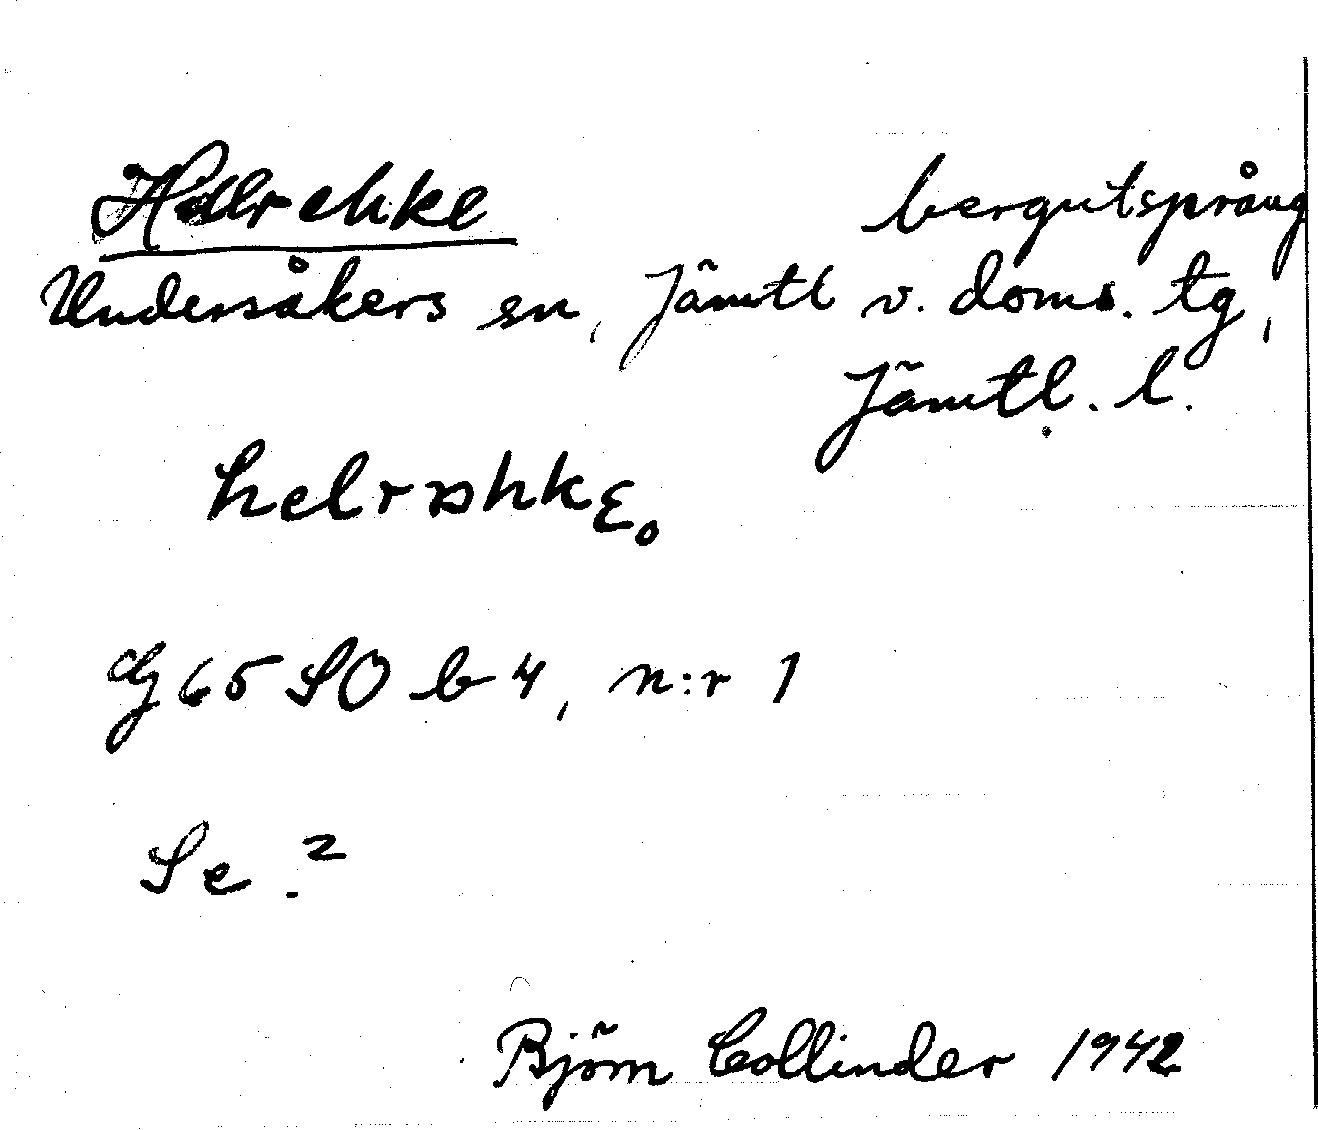 bergutsprång
Undersåkers sn, Jämtl v. doms. tg,
Jämtl. l.
G 65 SO b 4, n:r 1
Se.
Björn Collinder 1942